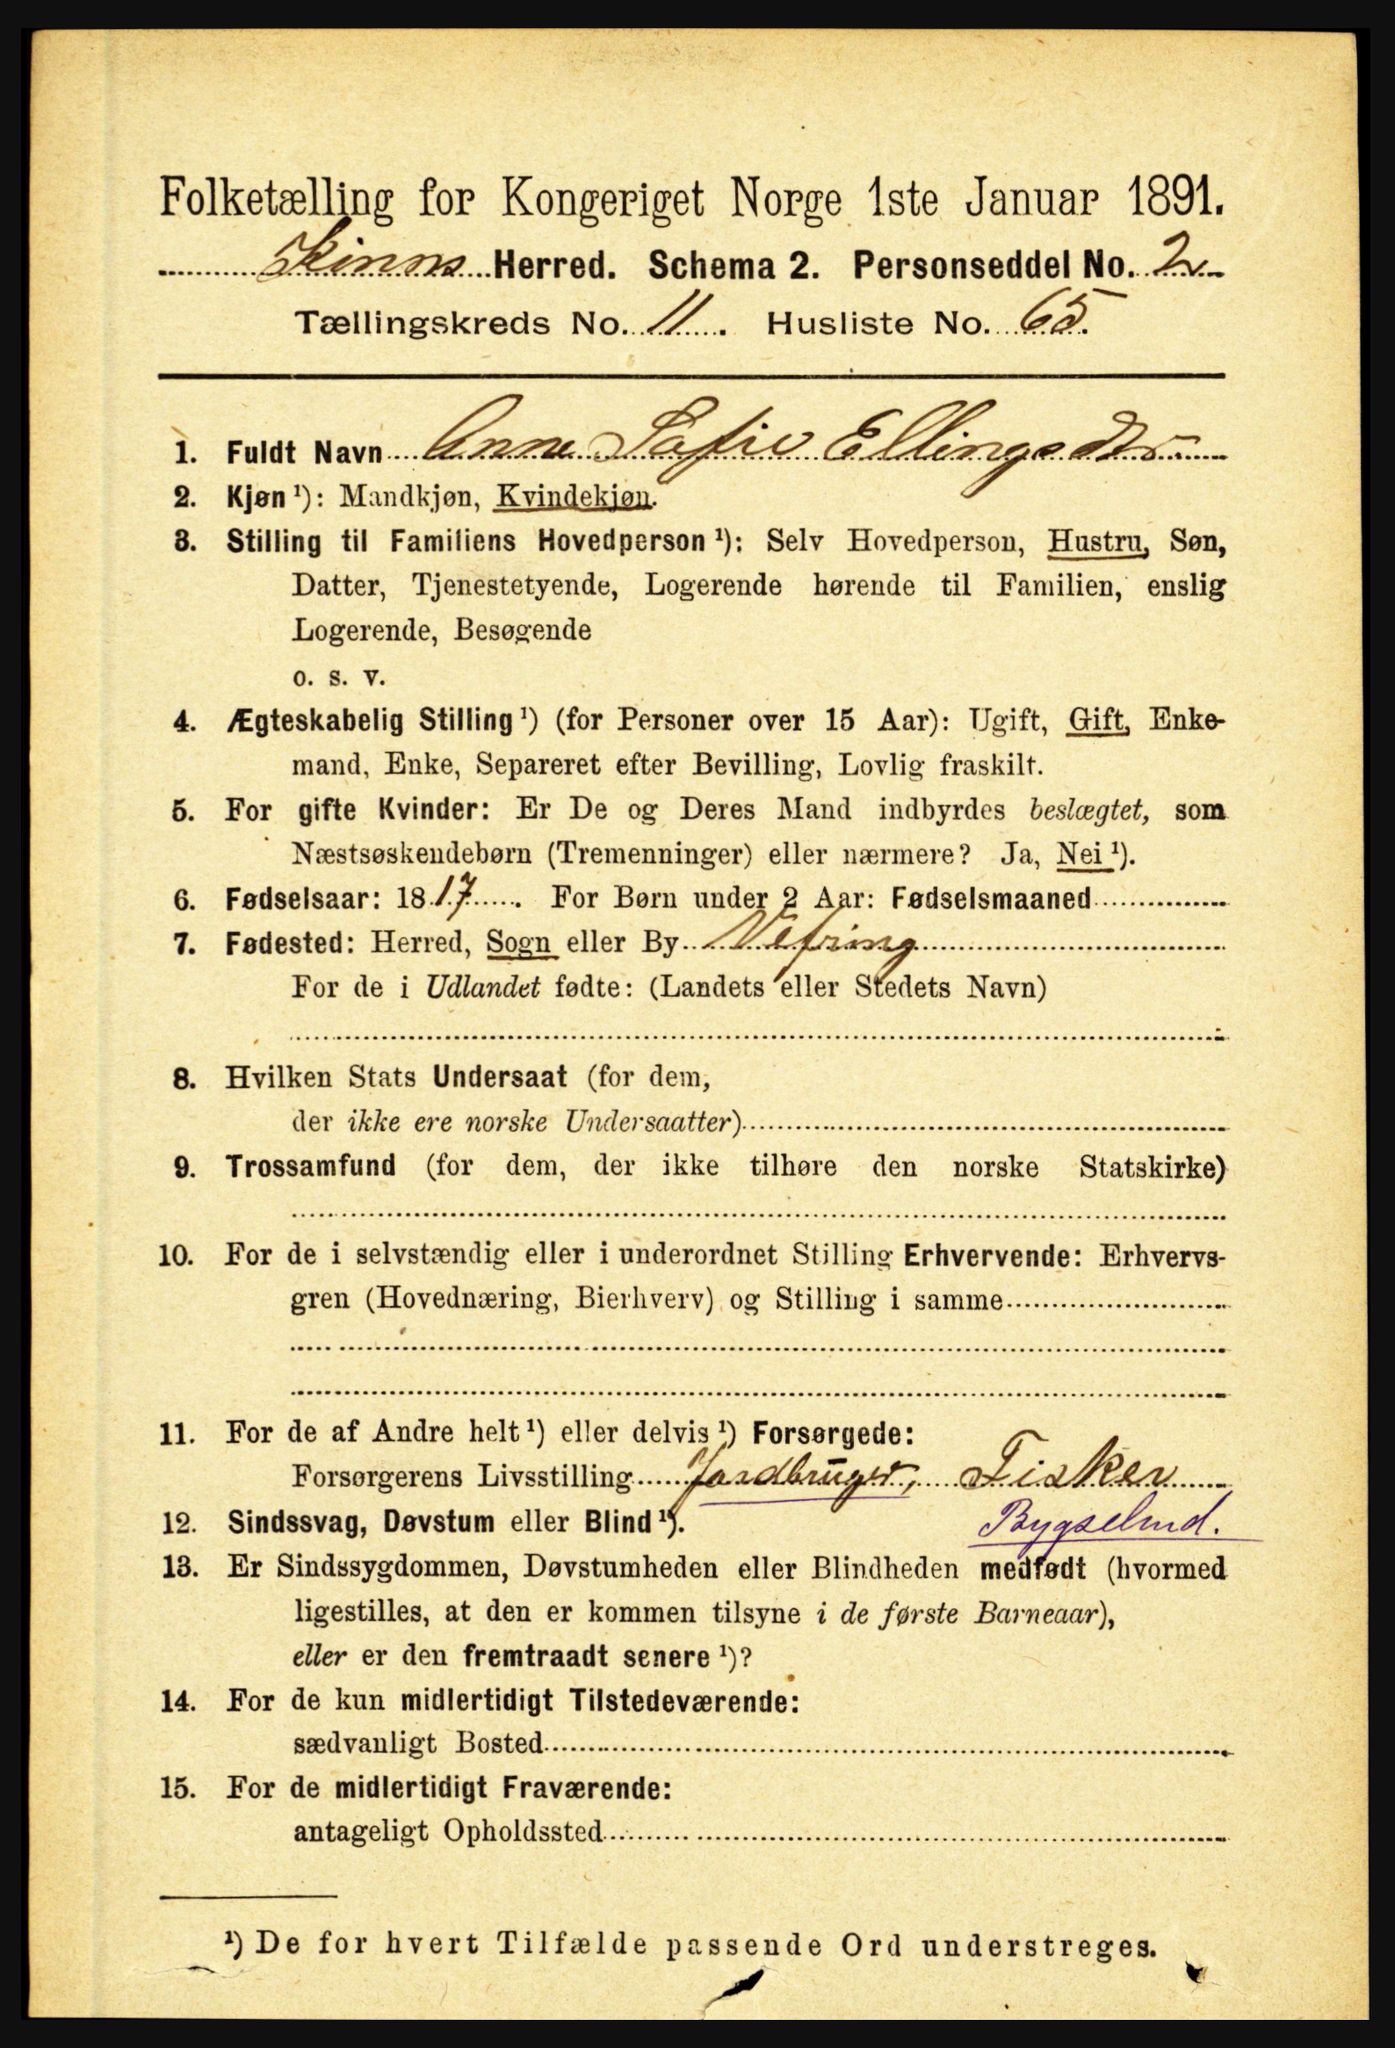 Folketælling for Kongeriget Norge 1ste Januar 1891.
Kinns Herred. Schema 2. Personseddel No. 2
Tællingskreds No. 11. Husliste No. 65.
1. Fuldt Navn Anne Sofie Ellingsdtr.
2. Kjøn ¹): Mandkjøn, Kvindekjøn.
3. Stilling til Familiens Hovedperson ¹): Selv Hovedperson, Hustru, Søn,
Datter, Tjenestetyende, Logerende hørende til Familien, enslig
Logerende, Besøgende
o. s. v.
4. Ægteskabelig Stilling ¹) (for Personer over 15 Aar): Ugift, Gift, Enke-
mand, Enke, Separeret efter Bevilling, Lovlig fraskilt.
5. For gifte Kvinder: Er De og Deres Mand indbyrdes beslægtet, som
Næstsøskendebørn (Tremenninger) eller nærmere? Ja, Nei ¹).
6. Fødselsaar: 1817. For Børn under 2 Aar: Fødselsmaaned
7. Fødested: Herred, Sogn eller By Vefring
For de i Udlandet fødte: (Landets eller Stedets Navn)
8. Hvilken Stats Undersaat (for dem,
der ikke ere norske Undersaatter)
9. Trossamfund (for dem, der ikke tilhøre den norske Statskirke)
10. For de i selvstændig eller i underordnet Stilling Erhvervende: Erhvervs-
gren (Hovednæring, Bierhverv) og Stilling i samme
11. For de af Andre helt ¹) eller delvis ¹) Forsørgede:
Forsørgerens Livsstilling Jordbruger, Fisker
12. Sindssvag, Døvstum eller Blind ¹). Bygselmd.
13. Er Sindssygdommen, Døvstumheden eller Blindheden medfødt (hvormed
ligestilles, at den er kommen tilsyne i de første Barneaar),
eller er den fremtraadt senere ¹)?
14. For de kun midlertidigt Tilstedeværende:
sædvanligt Bosted
15. For de midlertidigt Fraværende:
antageligt Opholdssted
¹) De for hvert Tilfælde passende Ord understreges.